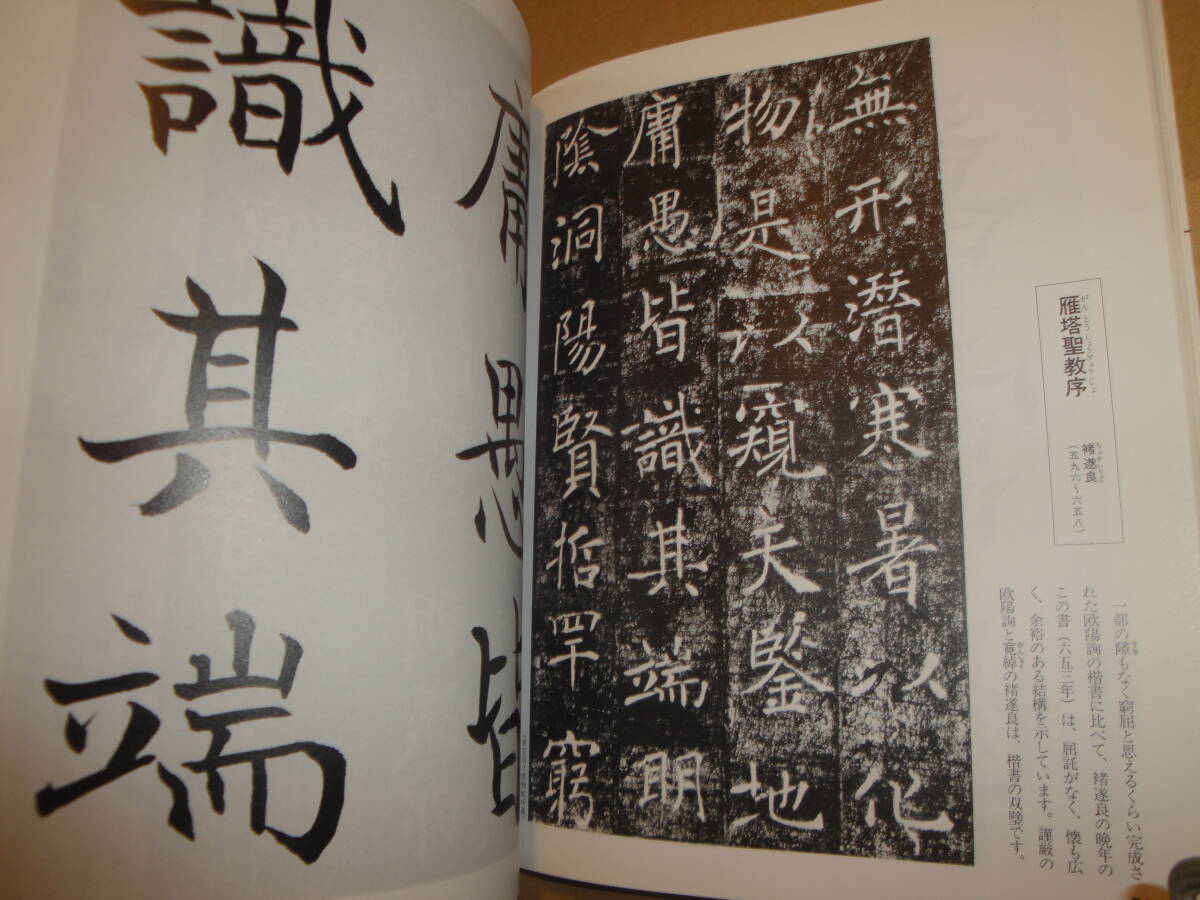 雁塔聖教序
褚遂良
(五九六〜六五八)
一部の隙もなく窮屈と思えるくらい完成さ
れた欧陽詢の楷書に比べて、褚遂良の晩年の
この書(六五三年)は、屈託がなく、懐も広
く、余裕のある結構を示しています。謹厳の
欧陽詢と寛綽の褚遂良は、楷書の双璧です。
無形潛寒暑以化
物是以窺天鑒地
庸愚皆識其端明
陰洞陽賢哲罕窮
庸愚皆
識其端